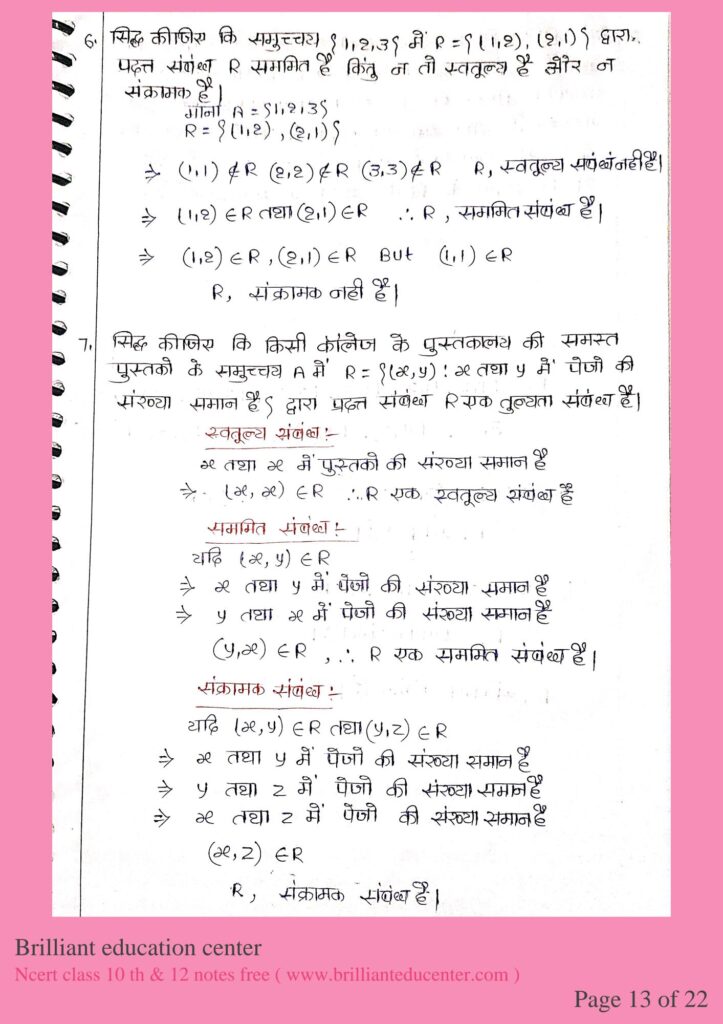 6. सिद्ध कीजिए कि समुच्चय {1,2,3} में R = {(1,2), (2,1)} द्वारा
प्रदत्त संबंध R सममित है किंतु न तो स्वतुल्य है और न
संक्रामक है|
माना A = {1,2,3}
R = {(1,2), (2,1)}
⇒ (1,1) ∉ R (2,2) ∉ R (3,3) ∉ R R, स्वतुल्य संबंध नही है|
⇒ (1,2) ∈ R तथा (2,1) ∈ R ∴ R, सममित संबंध है|
⇒ (1,2) ∈ R, (2,1) ∈ R But (1,1) ∈ R
R, संक्रामक नही है|
7. सिद्ध कीजिए कि किसी कॉलेज के पुस्तकालय की समस्त
पुस्तको के समुच्चय A में R = {(x,y) : x तथा y में पेजो की
संख्या समान है} द्वारा प्रदत्त संबंध R एक तुल्यता संबंध है|
स्वतुल्य संबंध :-
x तथा x में पुस्तको की संख्या समान है
⇒ (x, x) ∈ R ∴ R एक स्वतुल्य संबंध है
सममित संबंध :-
यदि (x, y) ∈ R
⇒ x तथा y में पेजो की संख्या समान है
⇒ y तथा x में पेजो की संख्या समान है
(y,x) ∈ R , ∴ R एक सममित संबंध है|
संक्रामक संबंध :-
यदि (x,y) ∈ R तथा (y,z) ∈ R
⇒ x तथा y में पेजो की संख्या समान है
⇒ y तथा z में पेजो की संख्या समान है
⇒ x तथा z में पेजो की संख्या समान है
(x,z) ∈ R
R, संक्रामक संबंध है|
Brilliant education center
Ncert class 10 th & 12 notes free ( www.brillianteducenter.com )
Page 13 of 22